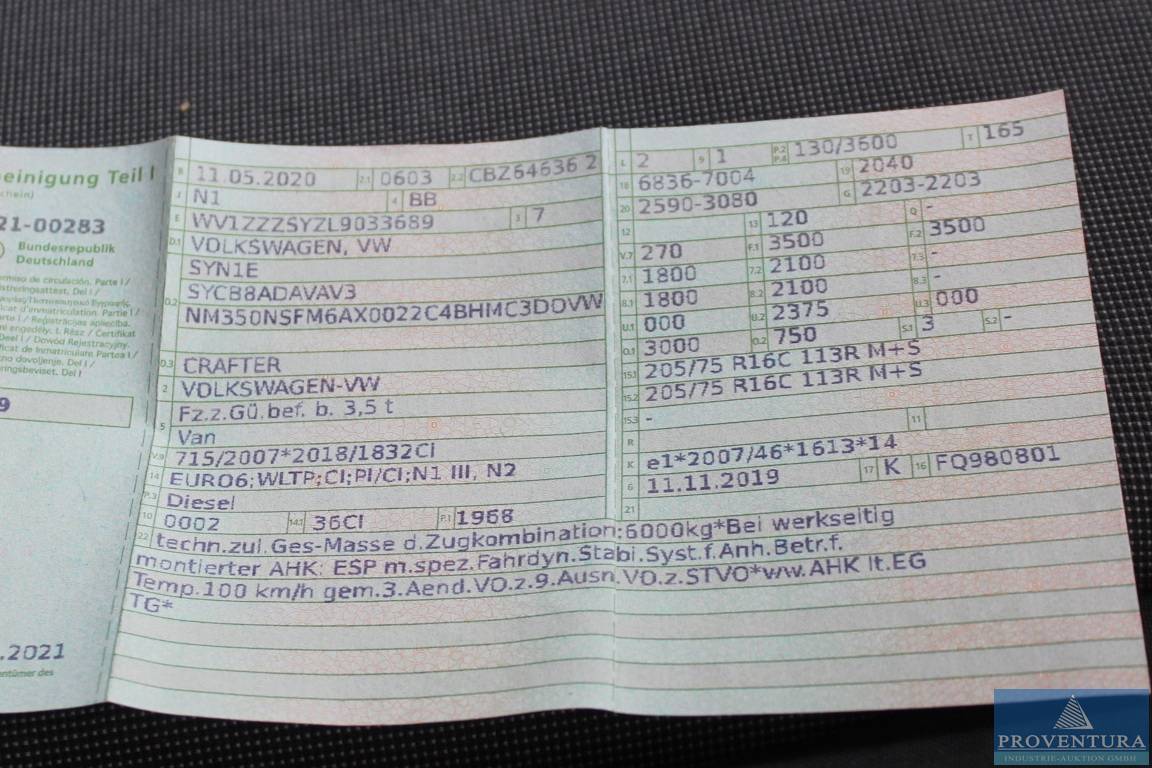 einigung Teil I
21-00283
Bundesrepublik
Deutschland
9
.2021
B 11.05.2020 2.1 0603 2.2 CBZ64636 2
J N1 4 BB
E WV1ZZZSYZL9033689 3 7
D.1 VOLKSWAGEN, VW
SYN1E
D.2 SYCB8ADAVAV3
NM350NSFM6AX0022C4BHMC3DOVW
D.3 CRAFTER
2 VOLKSWAGEN-VW
Fz.z.Gü.bef. b. 3,5 t
5 Van
V.9 715/2007*2018/1832CI
14 EURO6;WLTP;CI;PI/CI;N1 III, N2
P.3 Diesel
10 0002 14.1 36CI P.1 1968
L 2 9 1 P.2 P.4 130/3600 T 165
18 6836-7004 19 2040
20 2590-3080 G 2203-2203
12 13 120 Q -
V.7 270 F.1 3500 F.2 3500
7.1 1800 7.2 2100 7.3 -
8.1 1800 8.2 2100 8.3 -
U.1 000 U.2 2375 U.3 000
O.1 3000 O.2 750 S.1 3 S.2 -
15.1 205/75 R16C 113R M+S
15.2 205/75 R16C 113R M+S
15.3 -
R 11
K e1*2007/46*1613*14
6 11.11.2019 17 K 16 FQ980801
21
22 techn.zul.Ges-Masse d.Zugkombination:6000kg*Bei werkseitig
montierter AHK: ESP m.spez.Fahrdyn.Stabi.Syst.f.Anh.Betr.f.
Temp.100 km/h gem.3.Aend.VO.z.9.Ausn.VO.z.STVO*ww.AHK lt.EG
TG*
PROVENTURA
INDUSTRIE-AUKTION GMBH